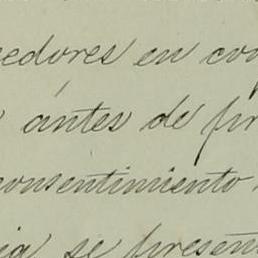 edores en con
antes de pr
consentimiento
se presen